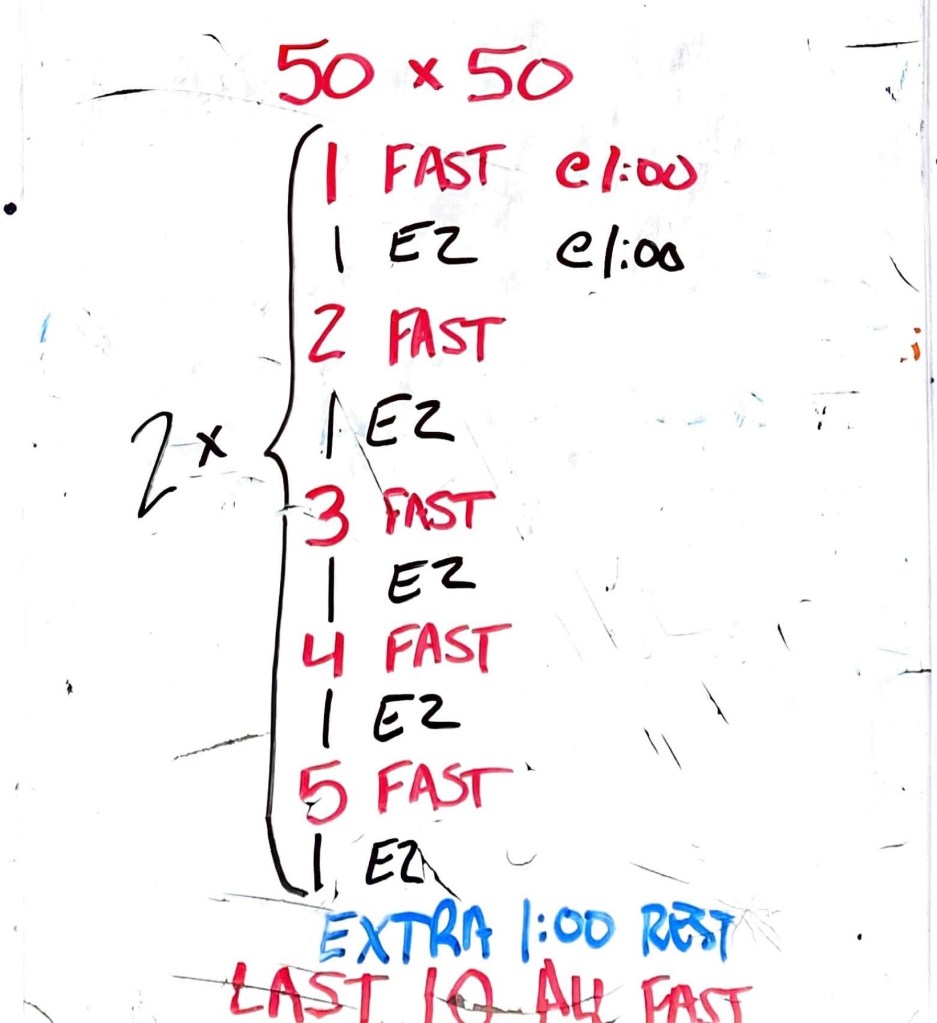 50 x 50
1 FAST @1:00
1 EZ @1:00
2 FAST
1 EZ
2x
3 FAST
1 EZ
4 FAST
1 EZ
5 FAST
1 EZ
EXTRA 1:00 REST
LAST 10 ALL FAST